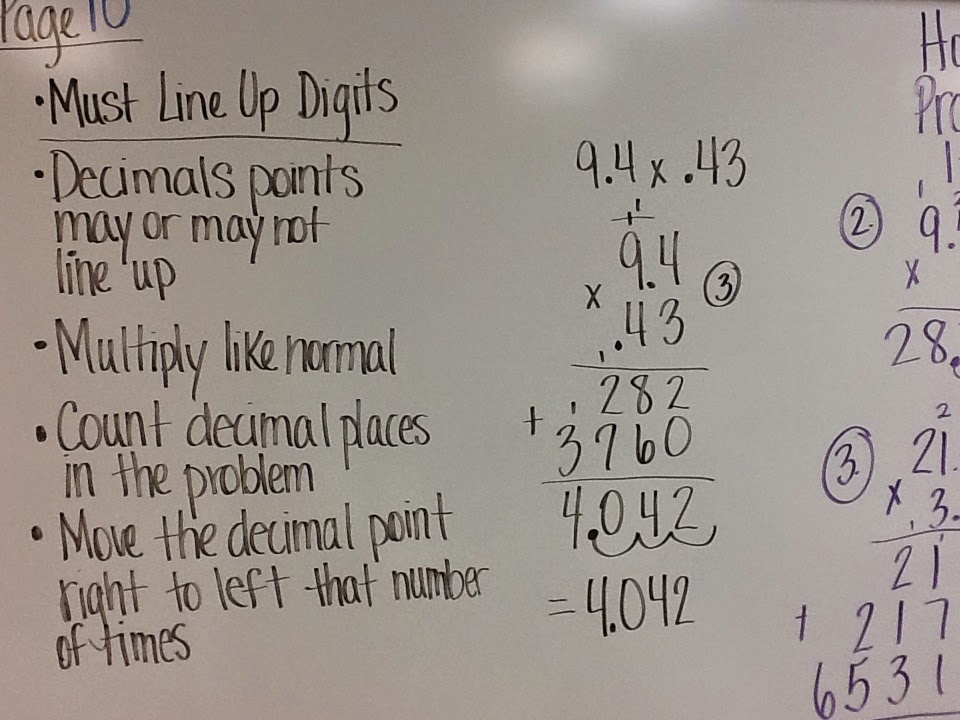 Page 10
• Must Line Up Digits
• Decimals points
may or may not
line up
• Multiply like normal
• Count decimal places
in the problem
• Move the decimal point
right to left that number
of times
9.4 x .43
1
1
9.4
x .43
③
282
+ 3760
4.042
= 4.042
②. 9.
x
28.
③. 2
21.
x 3.
21
+ 217
6531